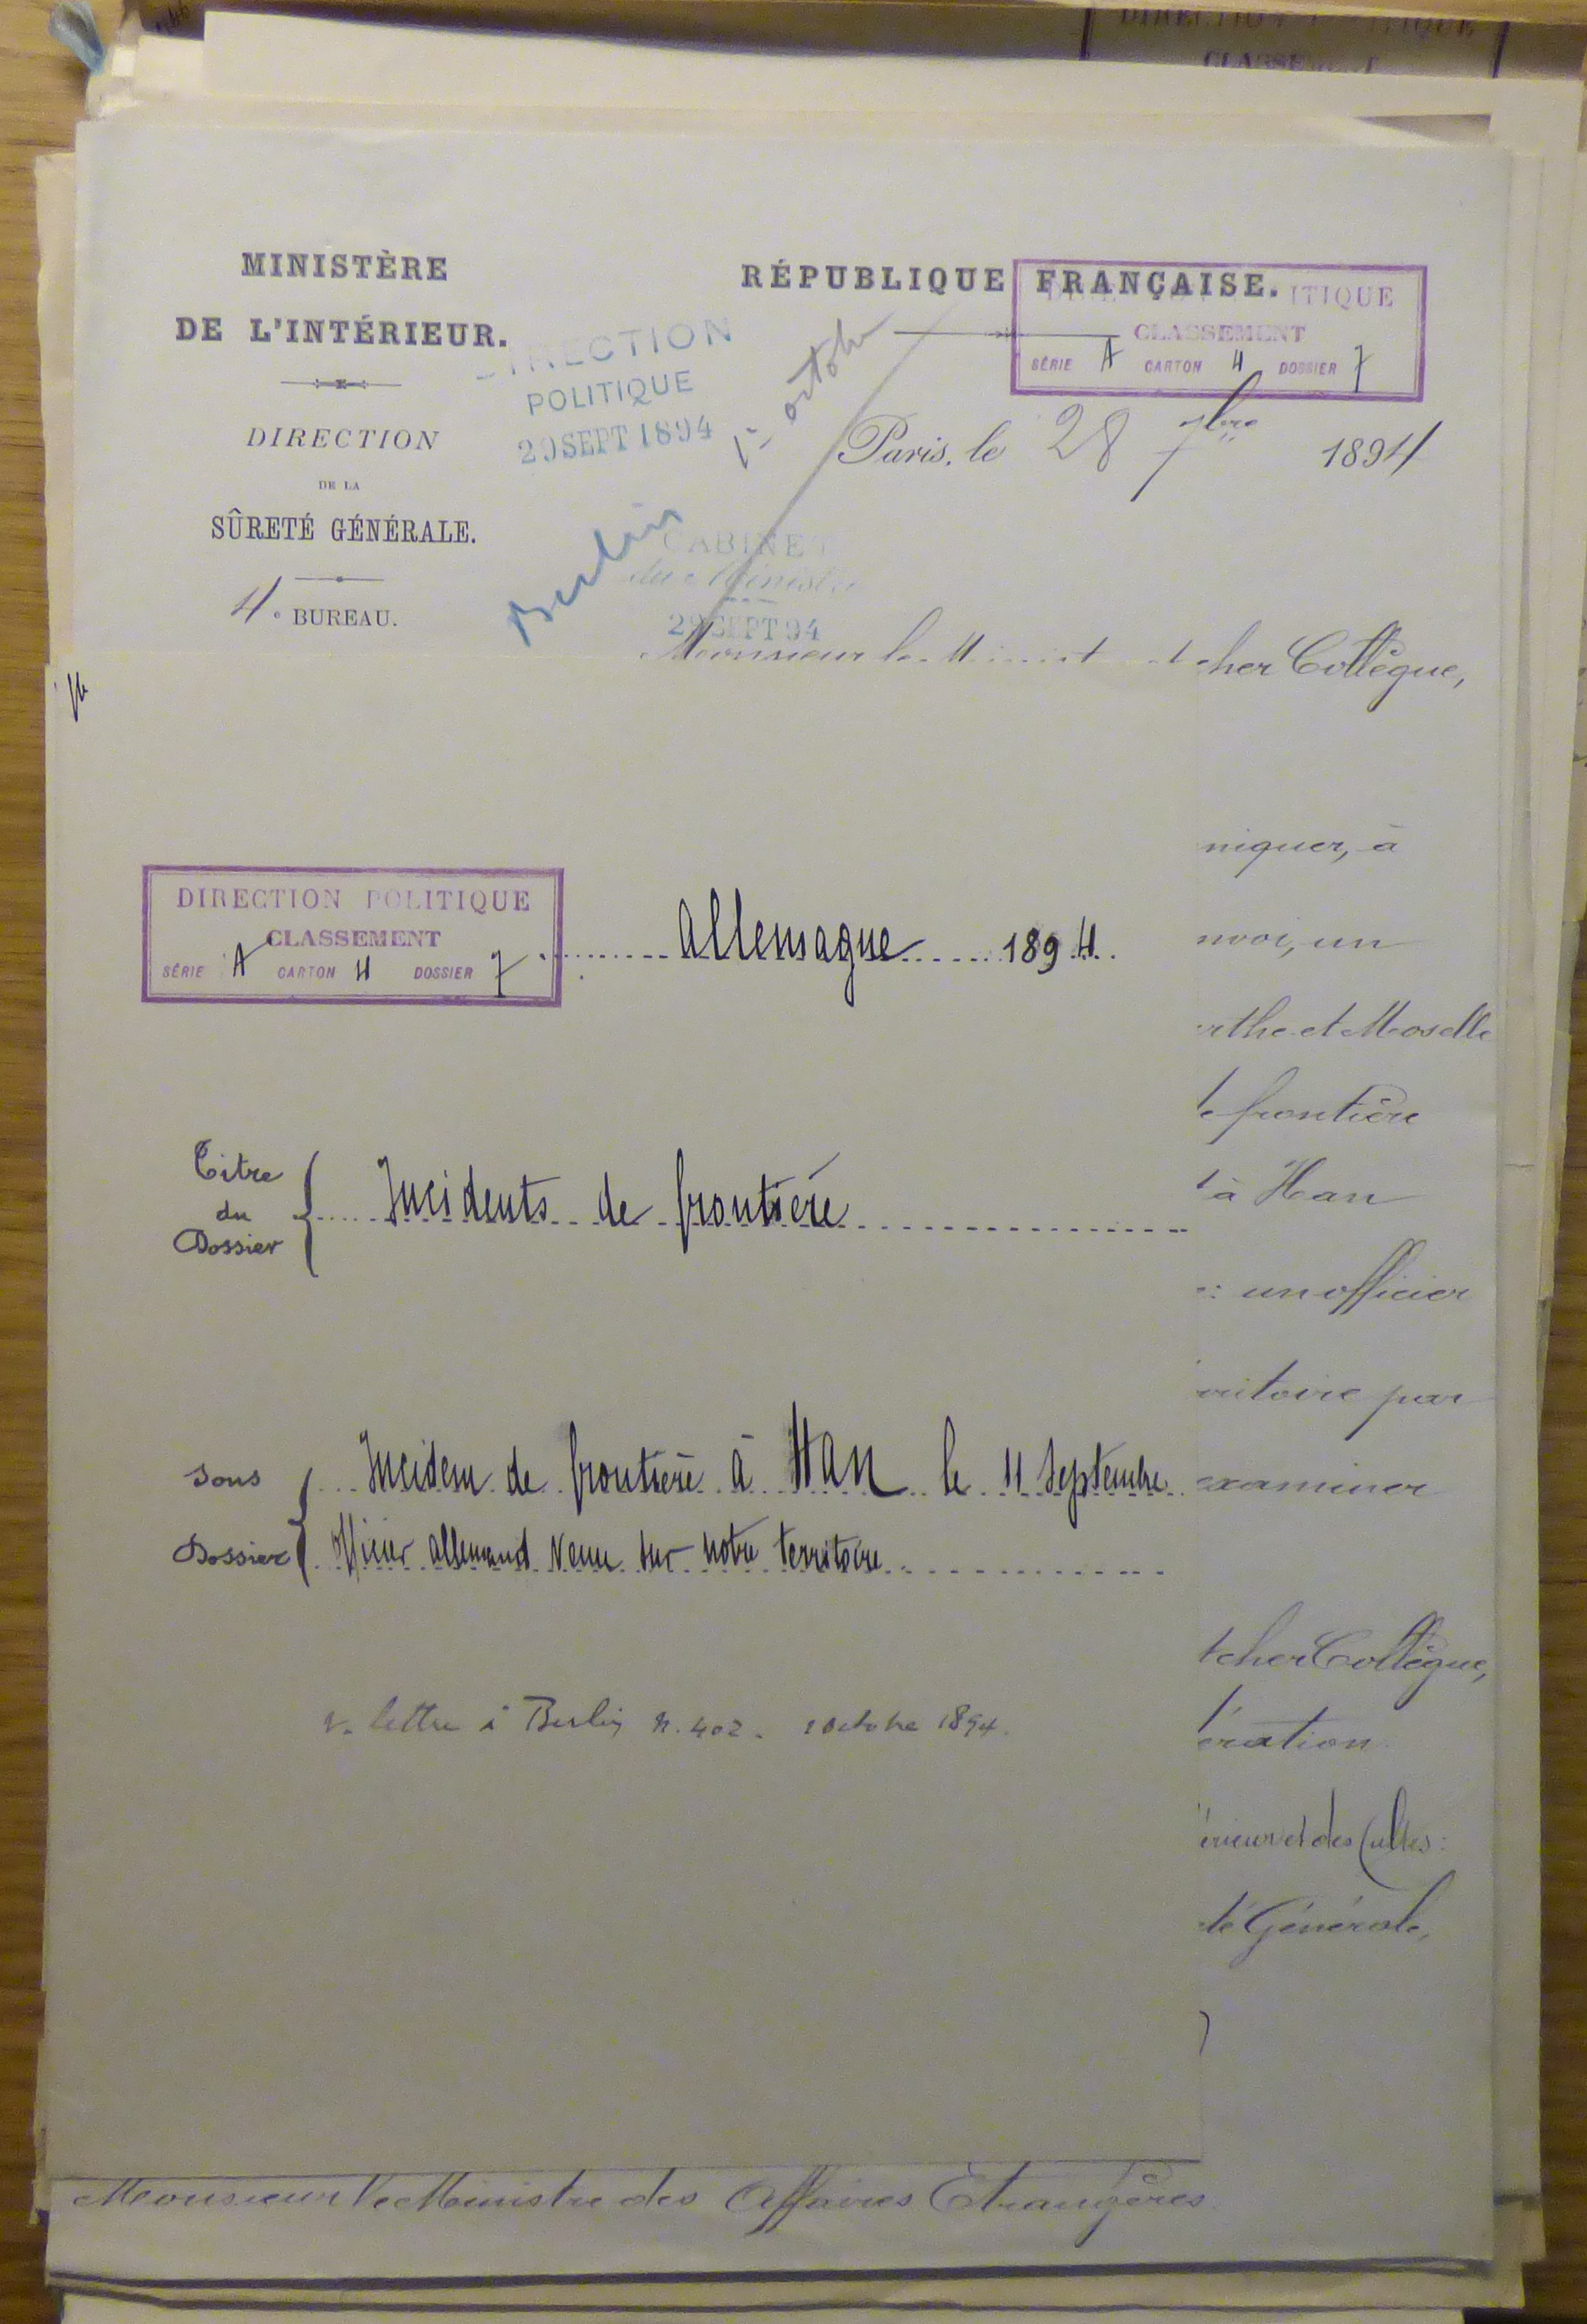 DIRECTION
CLASSEMENT
MINISTÈRE
DE L'INTÉRIEUR.
DIRECTION
DE LA
SÛRETÉ GÉNÉRALE.
4e BUREAU.
DIRECTION
POLITIQUE
29 SEPT 1894
Berlin
1er octobre
CABINET
du Ministre
29 SEPT 94
RÉPUBLIQUE FRANÇAISE.
ITIQUE
CLASSEMENT
SÉRIE A CARTON 4 DOSSIER 7
Paris, le 28 7bre 1894
Monsieur le Minist t cher Collègue,
niquer, à
nvoi, un
rthe et Moselle
frontière
à Han
un officier
ritoire par
examiner
t cher Collègue,
ération
érieur et des Cultes:
té Générale,
DIRECTION POLITIQUE
CLASSEMENT
SÉRIE A CARTON 4 DOSSIER 7
Allemagne 1894.
Titre
du
Dossier
Incidents de frontière
Sous
Dossier
Incident de frontière à Han le 11 Septembre
Officier allemand venu sur notre territoire
v. lettre à Berlin n. 402. 1 octobre 1894.
Monsieur le Ministre des Affaires Etrangères